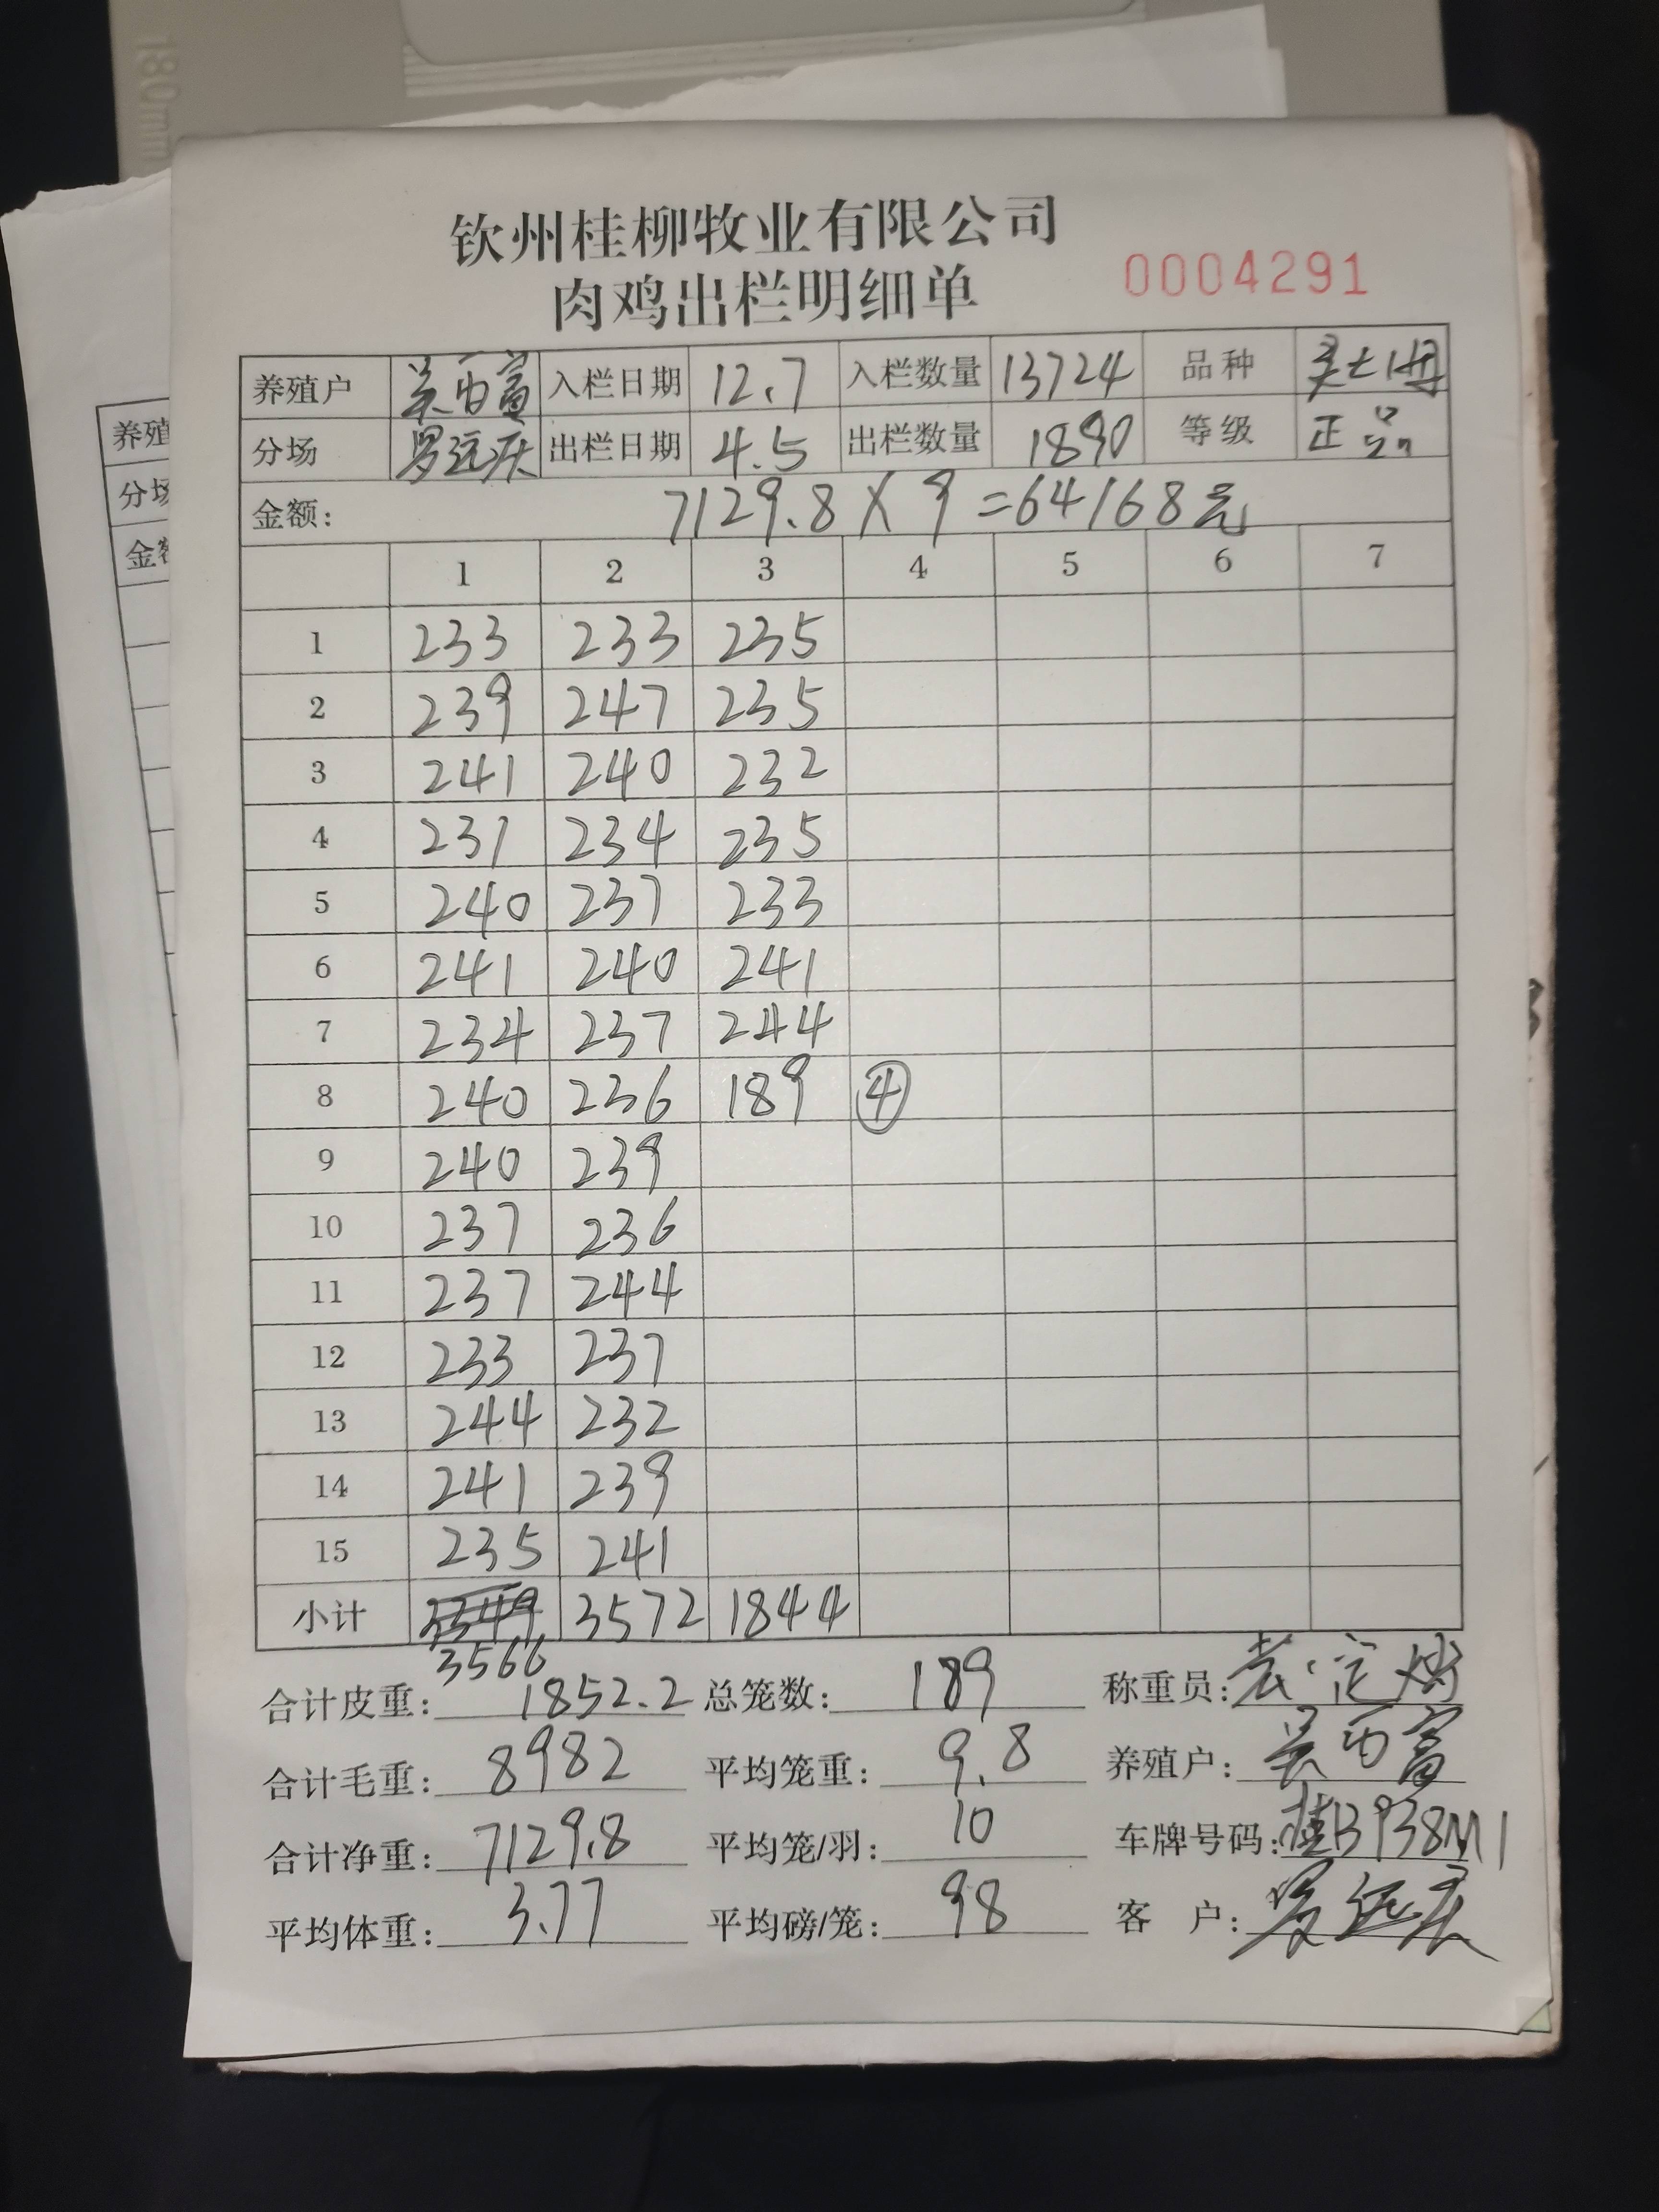 180mm
钦州桂柳牧业有限公司
肉鸡出栏明细单 0004291
养殖户 吴西富 入栏日期 12.7 入栏数量 13724 品种
分场 罗远庆 出栏日期 4.5 出栏数量 1890 等级 正品
金额: 7129.8 X 9 = 64168元
1 2 3 4 5 6 7
1 233 233 235
2 239 247 235
3 241 240 232
4 231 234 235
5 240 237 233
6 241 240 241
7 234 237 244
8 240 236 189 ④
9 240 239
10 237 236
11 237 244
12 233 237
13 244 232
14 241 239
15 235 241
小计 3349 3572 1844
3566
合计皮重: 1852.2 总笼数: 189 称重员:
合计毛重: 8982 平均笼重: 9.8 养殖户: 吴西富
合计净重: 7129.8 平均笼/羽: 10 车牌号码: 桂B938M1
平均体重: 3.77 平均磅/笼: 98 客 户: 罗远庆
养殖
分场
金额